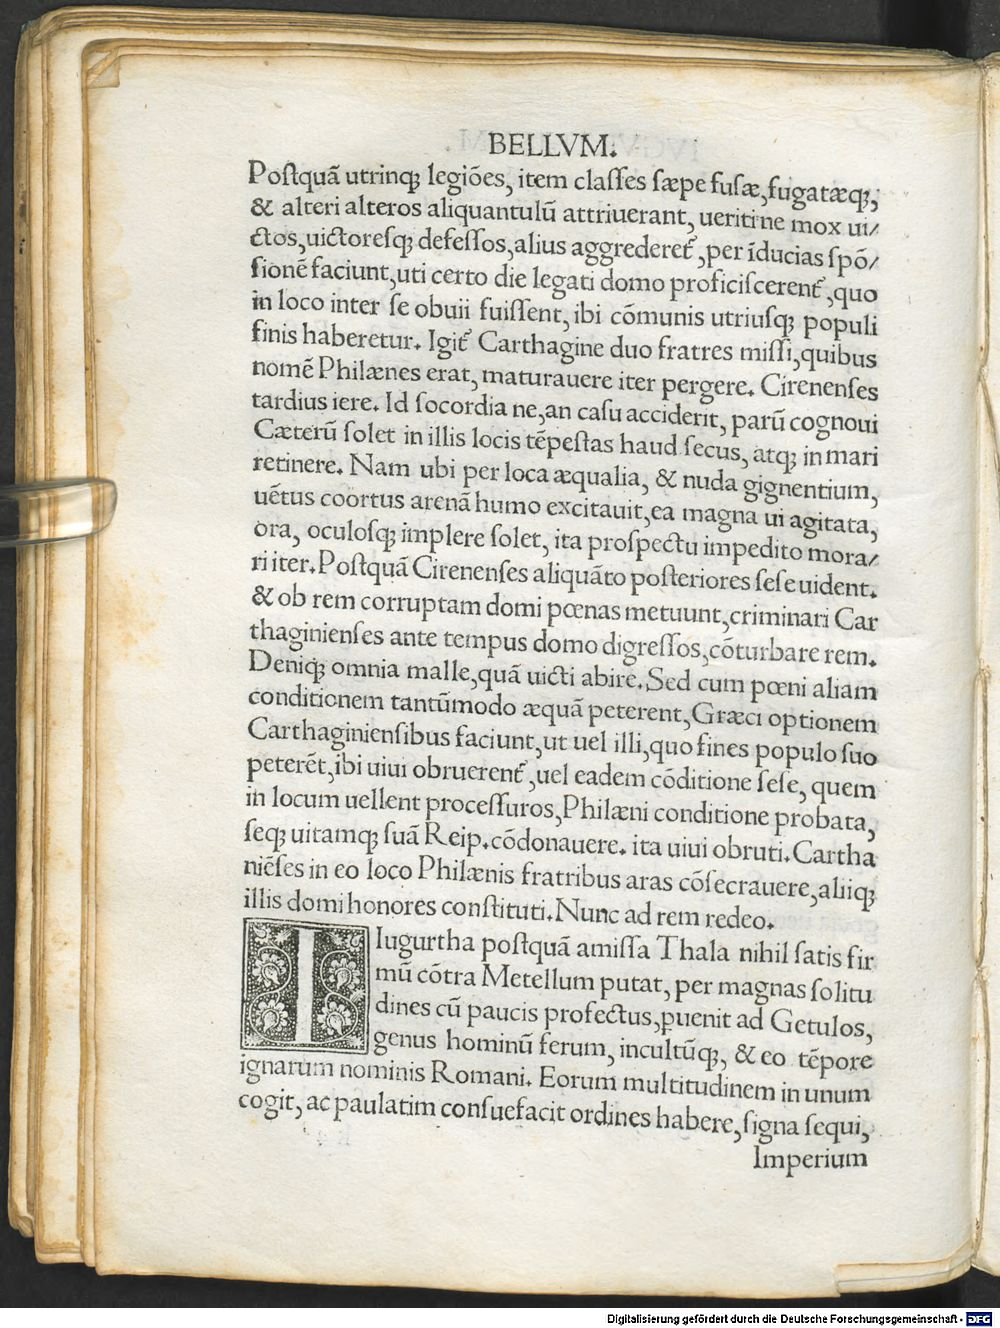 BELLVM.
Poſtquã utrinqꝫ legiões, item claſſes ſæpe fuſæ, fugatæqꝫ,
& alteri alteros aliquantulũ attriuerant, ueriti ne mox ui/
ctos, uictoreſqꝫ defeſſos, alius aggrederet᷑, per ĩducias ſpõ/
ſionẽ faciunt, uti certo die legati domo proficiſcerent᷑, quo
in loco inter ſe obuii fuiſſent, ibi cõmunis utriuſqꝫ populi
finis haberetur. Igit᷑ Carthagine duo fratres miſſi, quibus
nomẽ Philænes erat, maturauere iter pergere. Cirenenſes
tardius iere. Id ſocordia ne, an caſu acciderit, parũ cognoui
Cæterũ ſolet in illis locis tẽpeſtas haud ſecus, atqꝫ in mari
retinere. Nam ubi per loca æqualia, & nuda gignentium,
uẽtus coortus arenã humo excitauit, ea magna ui agitata,
ora, oculoſqꝫ implere ſolet, ita proſpectu impedito mora/
ri iter. Poſtquã Cirenenſes aliquãto poſteriores ſeſe uident.
& ob rem corruptam domi pœnas metuunt, criminari Car
thaginienſes ante tempus domo digreſſos, cõturbare rem.
Deniqꝫ omnia malle, quã uicti abire. Sed cum pœni aliam
conditionem tantũmodo æquã peterent, Græci optionem
Carthaginienſibus faciunt, ut uel illi, quo fines populo ſuo
peterẽt, ibi uiui obruerent᷑, uel eadem cõditione ſeſe, quem
in locum uellent proceſſuros, Philæni conditione probata,
ſeqꝫ uitamqꝫ ſuã Reip. cõdonauere. ita uiui obruti. Cartha
niẽſes in eo loco Philænis fratribus aras cõſecrauere, aliiqꝫ
illis domi honores conſtituti. Nunc ad rem redeo.
I Iugurtha poſtquã amiſſa Thala nihil ſatis fir
mũ cõtra Metellum putat, per magnas ſolitu
dines cũ paucis profectus, ꝑuenit ad Getulos,
genus hominũ ferum, incultũqꝫ, & eo tẽpore
ignarum nominis Romani. Eorum multitudinem in unum
cogit, ac paulatim conſuefacit ordines habere, ſigna ſequi,
Imperium
Digitalisierung gefördert durch die Deutsche Forschungsgemeinschaft - DFG